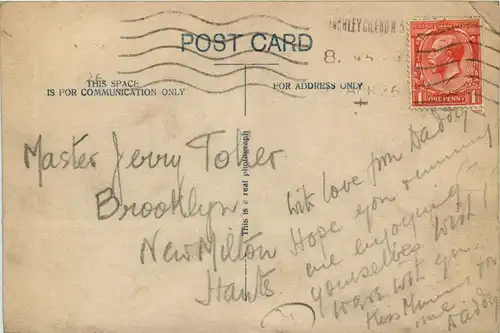 POST CARD
26
THIS SPACE
IS FOR COMMUNICATION ONLY
FOR ADDRESS ONLY
8.
26
ONE PENNY
This is a real photograph
Master Jerry Toher
Brooklyn
New Milton
Hants.
with love from Daddy
Hope you & mummy
are enjoying
yourselves Wish I
was with you
Kiss Mummy for
me.
Daddy